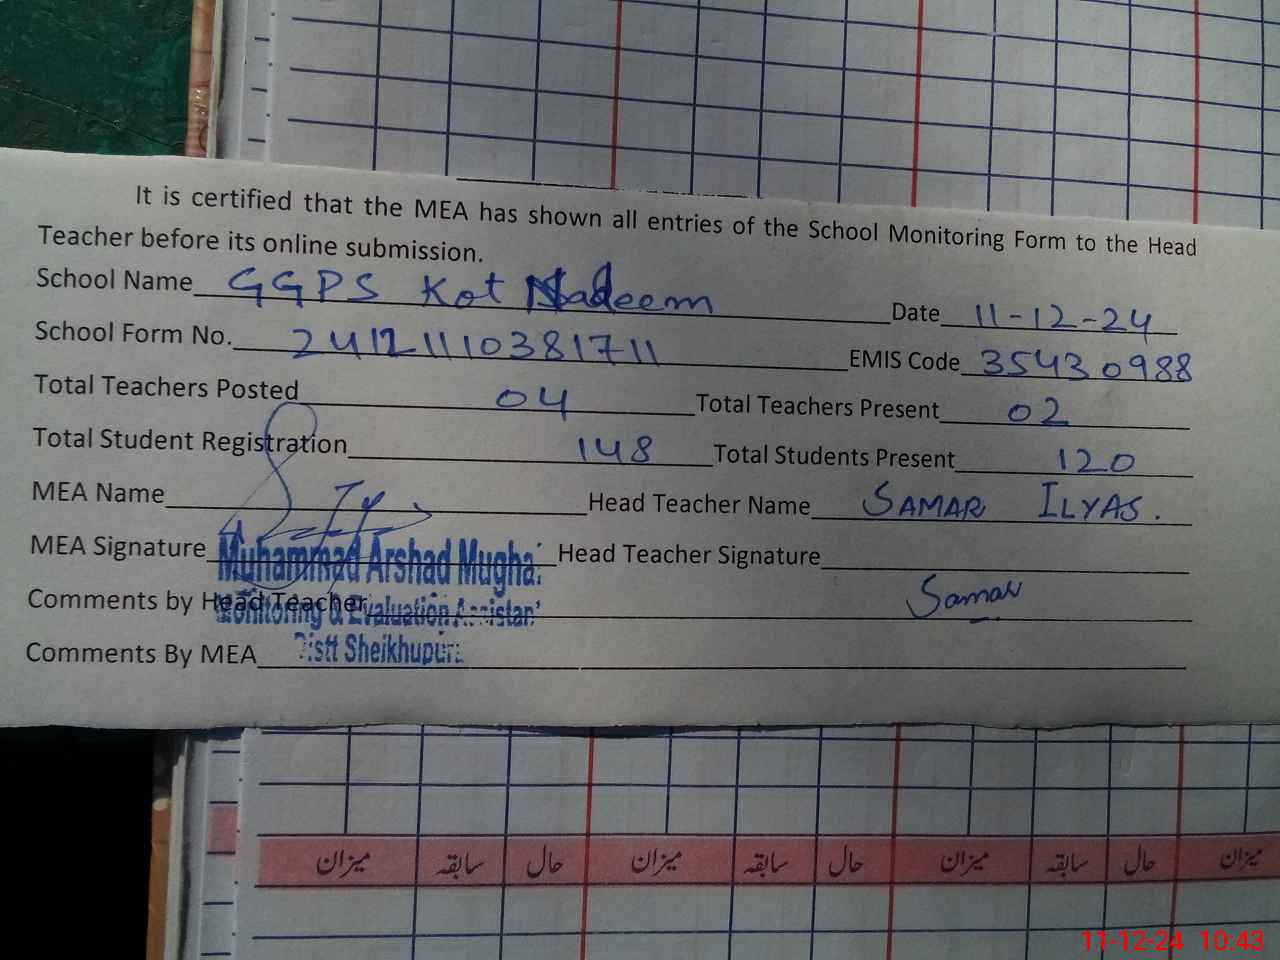 It is certified that the MEA has shown all entries of the School Monitoring Form to the Head
Teacher before its online submission.
School Name GGPS Kot Nadeem Date 11-12-24
School Form No. 24121110381711 EMIS Code 35430988
Total Teachers Posted 04 Total Teachers Present 02
Total Student Registration 148 Total Students Present 120
MEA Name Head Teacher Name SAMAR ILYAS.
MEA Signature Muhammad Arshad Mughal Head Teacher Signature
Samar
Comments by Head Teacher
Monitoring & Evaluation Assistant
Comments By MEA Distt Sheikhupura
میزان سابقہ حال میزان سابقہ حال میزان سابقہ حال میزان
11-12-24 10:43